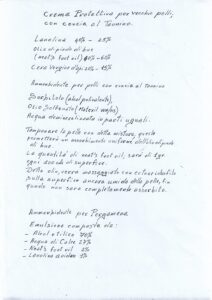 Crema Protettiva per vecchie pelli,
con concia al Tannino.
Lanolina 40% - 25%
Olio di piede di bue
(neat's foot oil) 40% - 60%
Cera Vergine d'api 20% - 15%
Ammorbidente per pelli con concia al Tannino
(alcol polivalente)
Olio Solfonato
Acqua demineralizzata in parti uguali.
Tamponare la pelle con detta mistura, questo
permetterà un assorbimento uniforme dell'olio di piede
di bue.
La quantità di neat's foot oil, sarà di 2gr.
ogni 20 cm di superfice.
Detto olio, verrà con cotone idrofilo
sulla superfice ancora umida della pelle, fin
quando non sarà completamente assorbito.
Ammorbidente per Pergamena
Emulsione composta da:
- Alcol etilico 70%
- Acqua di Calce 27%
- Neat's foot oil 2%
- Lanolina 1%